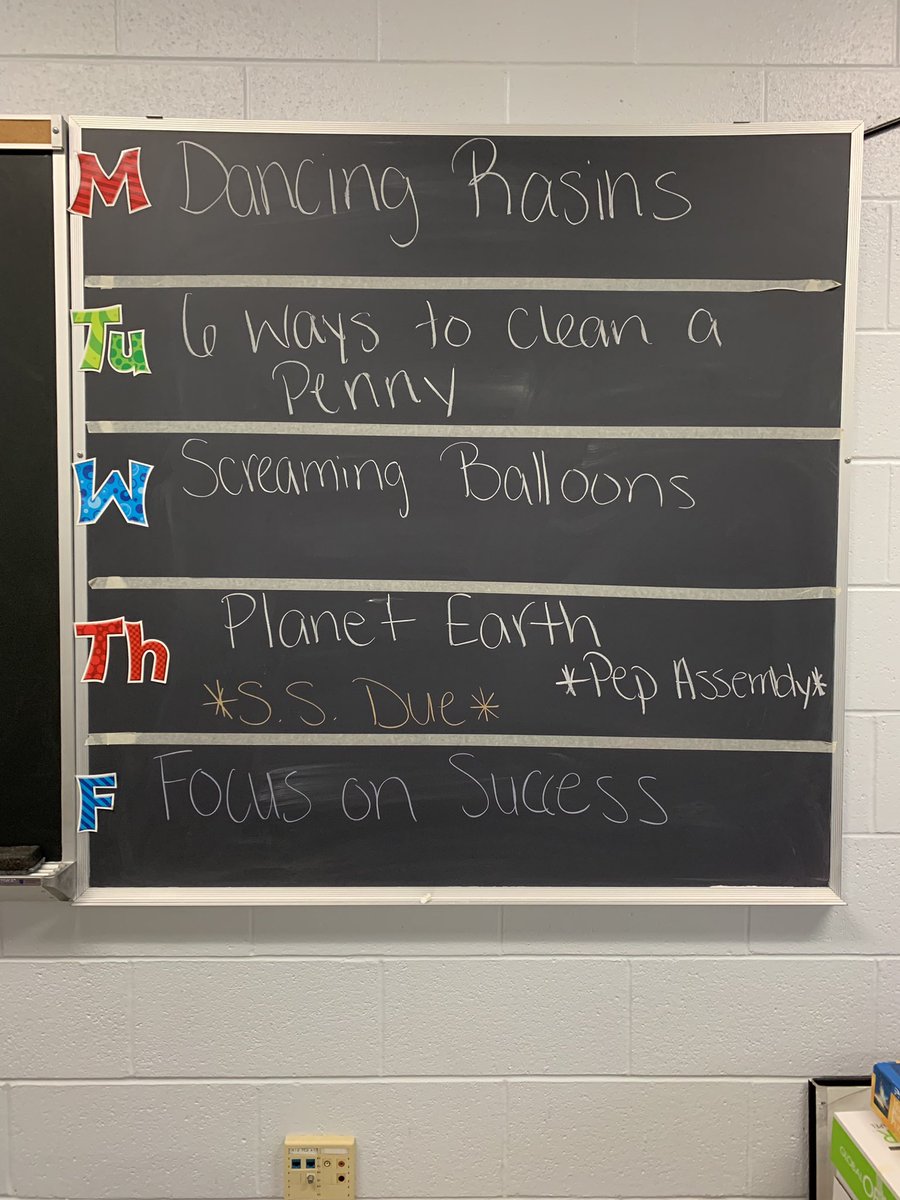 M Dancing Rasins
Tu 6 Ways to Clean a
Penny
W Screaming Balloons
Th Planet Earth
*Pep Assembly*
*S.S. Due*
F Focus on Success
GLOBAL